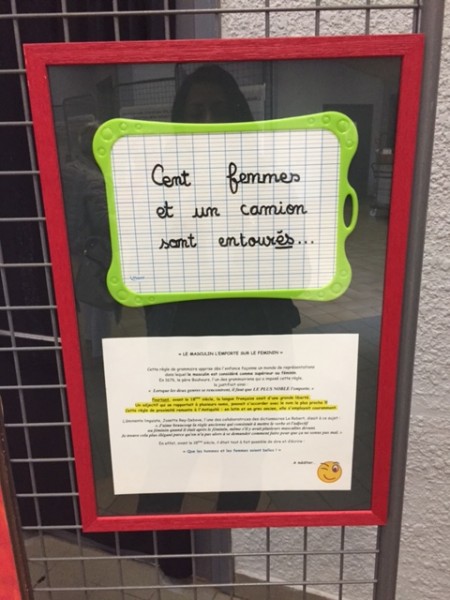 Cent femmes
et un camion
sont entourés...
« LE MASCULIN L'EMPORTE SUR LE FEMININ »
Cette règle de grammaire apprise dès l'enfance façonne un monde de représentations
dans lequel le masculin est considéré comme supérieur au féminin.
En 1676, le père Bouhours, l'un des grammairiens qui a imposé cette règle
la justifiait ainsi :
« lorsque les deux genres se rencontrent, il faut que LE PLUS NOBLE l'emporte. »
Pourtant, avant le 18ème siècle, la langue française usait d'une grande liberté.
Un adjectif qui se rapportait à plusieurs noms, pouvait s'accorder avec le nom le plus proche !!
Cette règle de proximité remonte à l'Antiquité : en latin et en grec ancien, elle s'employait couramment.
« Que les hommes et les femmes soient belles ! »
A méditer...